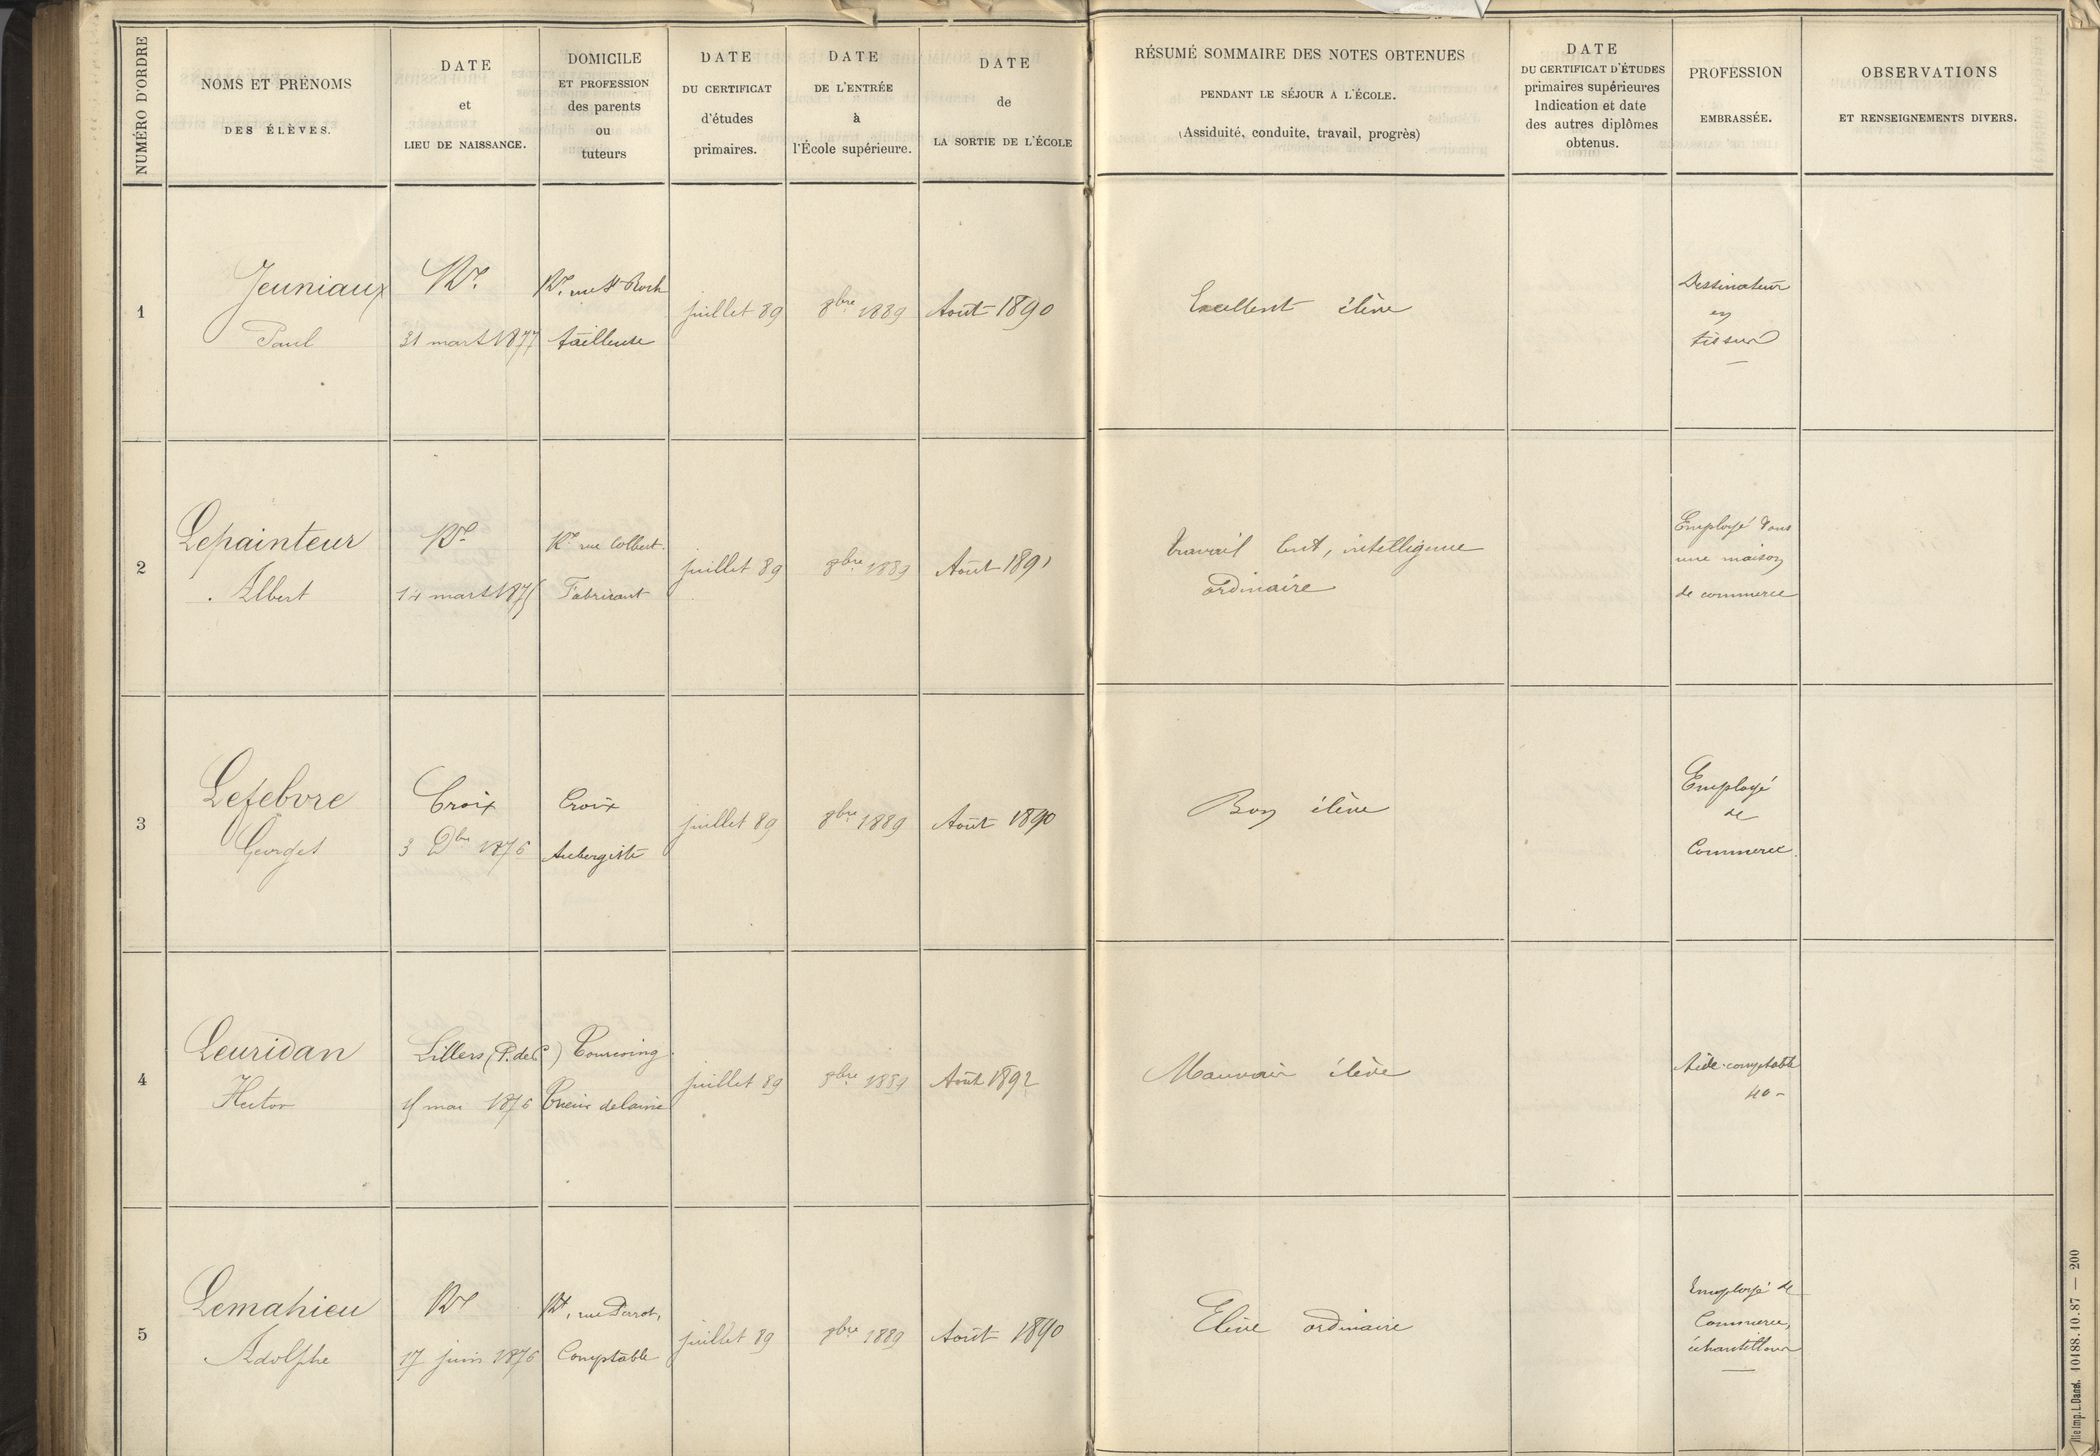 NUMÉRO D'ORDRE
NOMS ET PRÉNOMS
DES ÉLÈVES.
DATE
et
LIEU DE NAISSANCE.
DOMICILE
ET PROFESSION
des parents
ou
tuteurs
DATE
DU CERTIFICAT
d'études
primaires.
DATE
DE L'ENTRÉE
à
l'École supérieure.
DATE
de
LA SORTIE DE L'ÉCOLE
RÉSUMÉ SOMMAIRE DES NOTES OBTENUES
PENDANT LE SÉJOUR A L'ÉCOLE.
(Assiduité, conduite, travail, progrès)
DATE
DU CERTIFICAT D'ÉTUDES
primaires supérieures
Indication et date
des autres diplômes
obtenus.
PROFESSION
EMBRASSÉE.
OBSERVATIONS
ET RENSEIGNEMENTS DIVERS.
1
Jeuniaux
Paul
Rx
31 mars 1877
Rx rue St Roch
tailleuse
juillet 89
8bre 1889
Août 1890
Excellent élève
Dessinateur
en
tissus
2
Lepainteur
Albert
Rx
14 mars 1875
Rx rue Colbert.
Fabricant
juillet 89
8bre 1889
Août 1891
travail lent, intelligence
ordinaire
Employé dans
une maison
de commerce
3
Lefebvre
Georges
Croix
3 Dbre 1876
Croix
Aubergiste
juillet 89
8bre 1889
Août 1890
Bon élève
Employé
de
Commerce.
4
Leuridan
Hector
Lillers (P. de C)
15 mai 1876
Tourcoing.
Trieur de laine
juillet 89
8bre 1889
Août 1892
Mauvais élève
Aide-comptable
40 -
5
Lemahieu
Adolphe
Rx
17 juin 1876
Rx, rue Pierrot,
Comptable
juillet 89
8bre 1889
Août 1890
Elève ordinaire
Employé de
Commerce,
échantillons
Imp. L. Danel. 10188.10.87 — 200